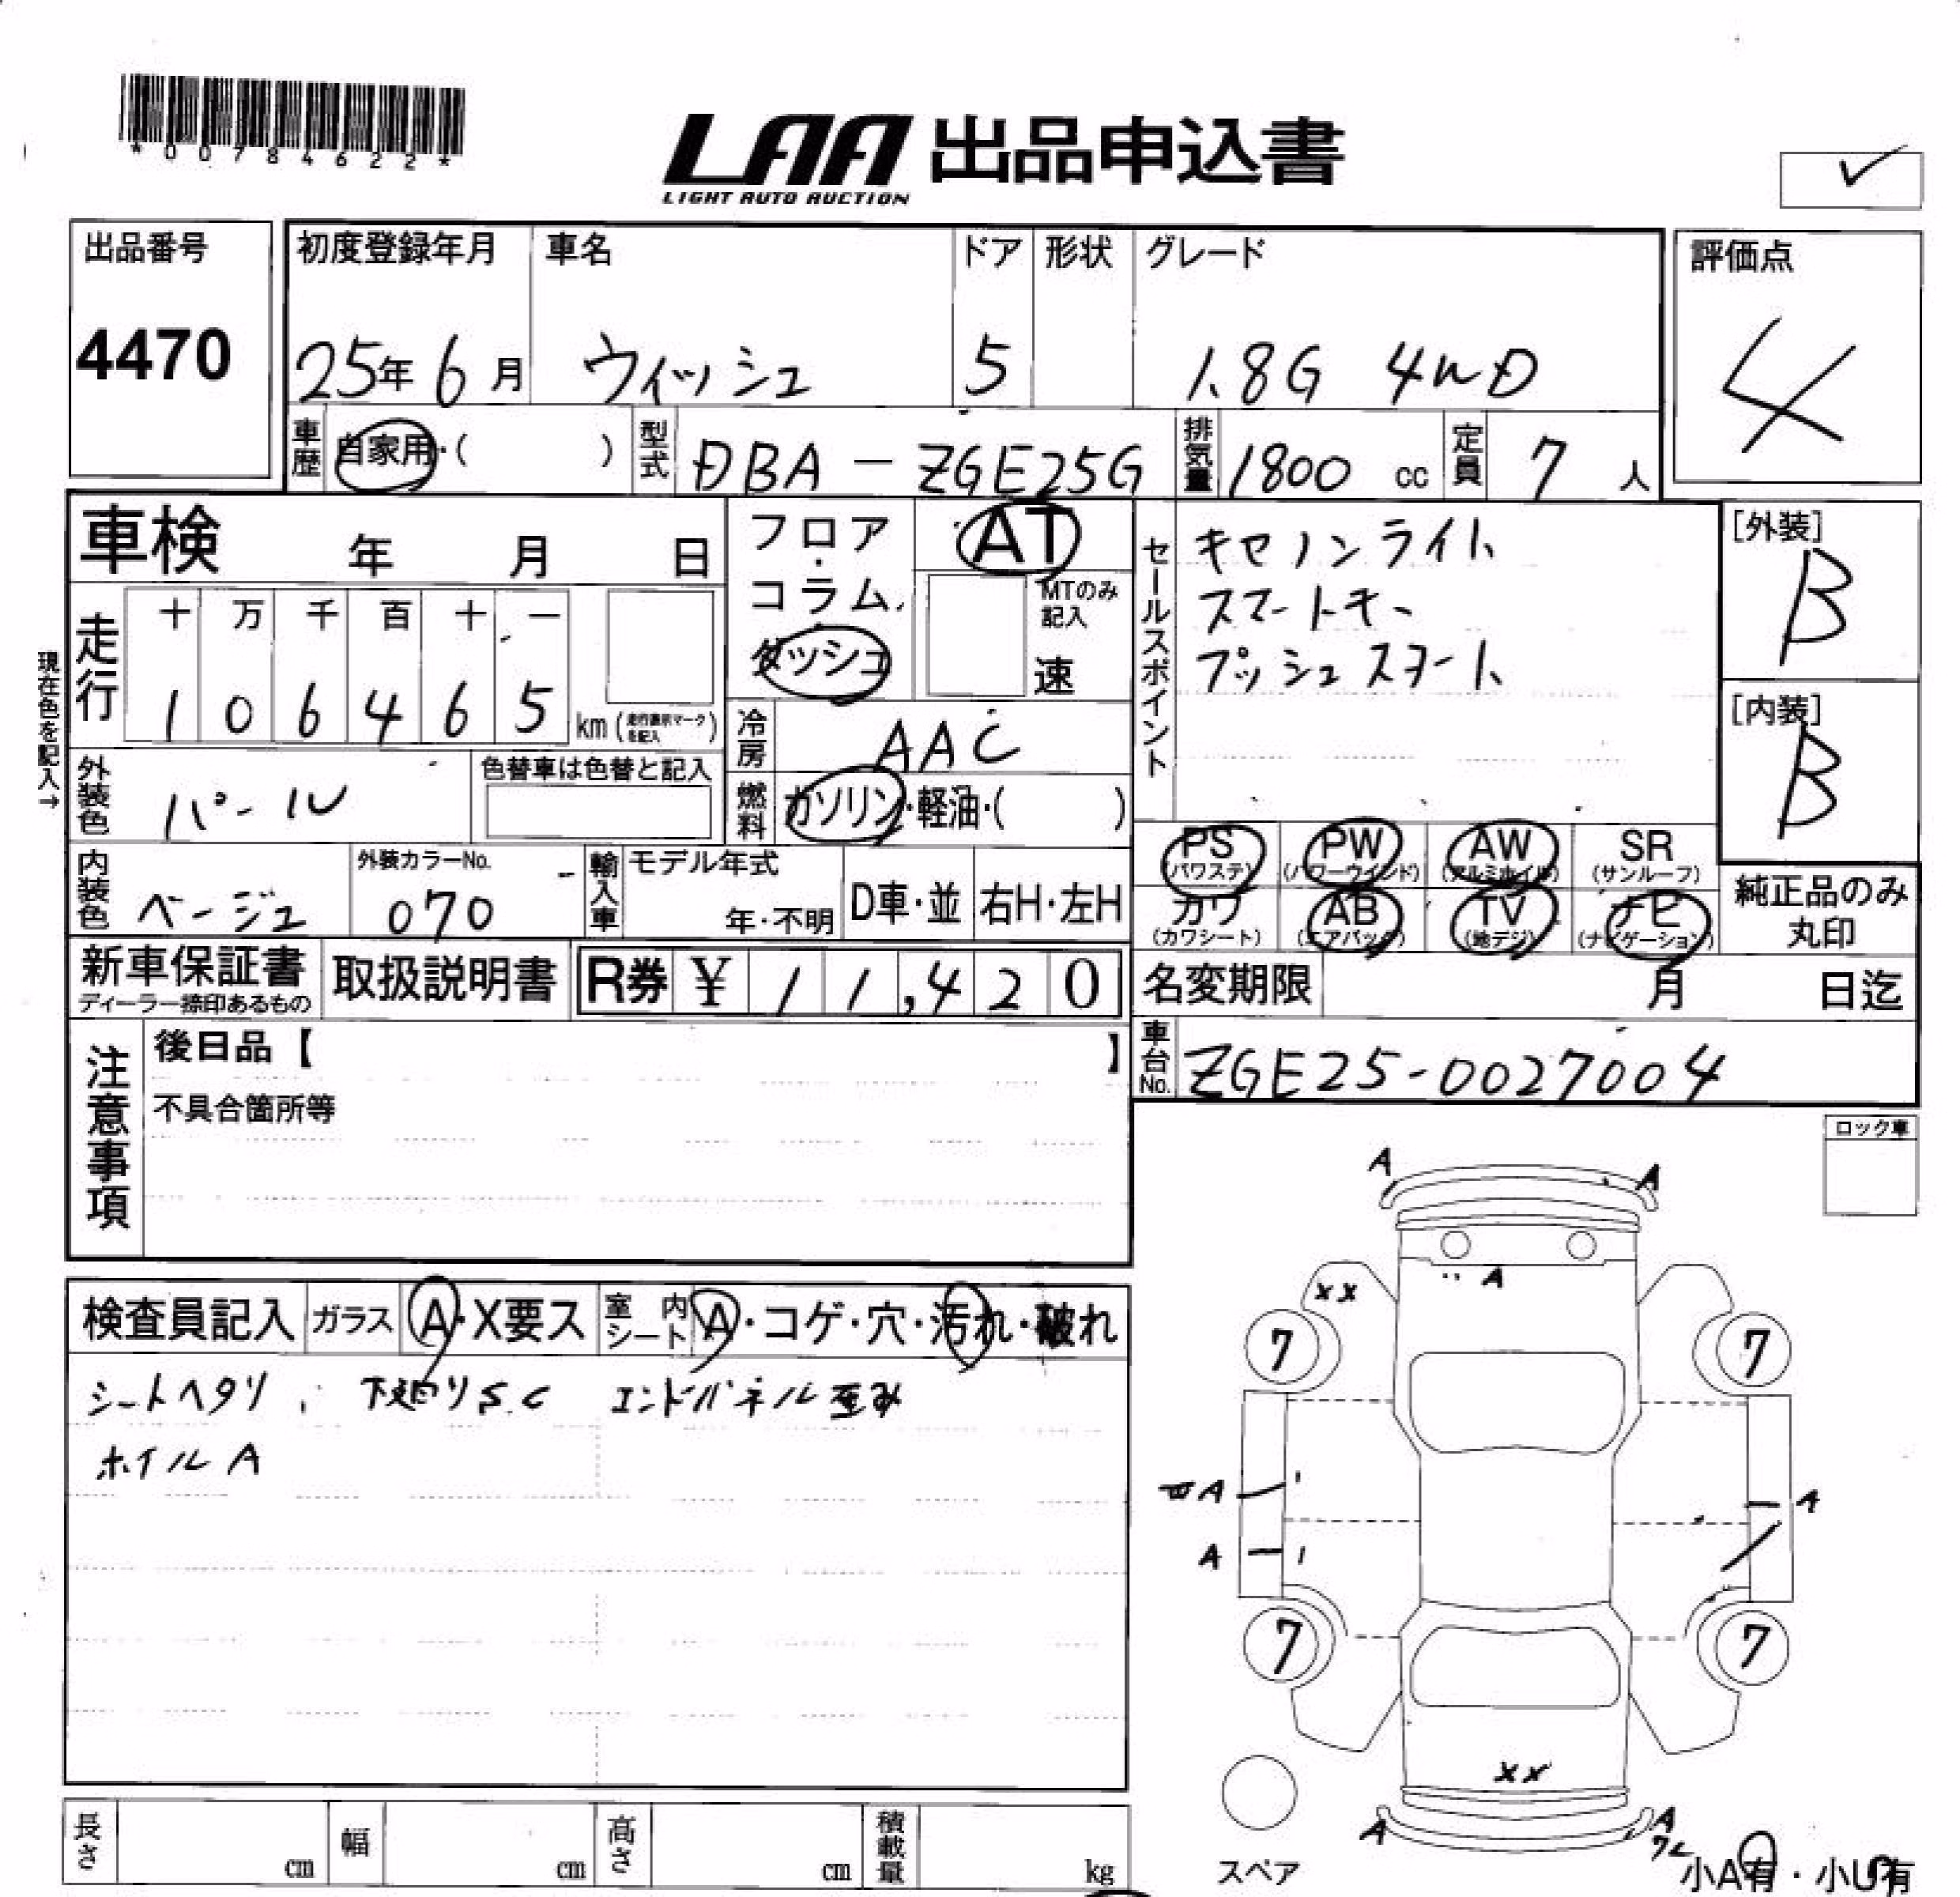 *00784622*
LAA 出品申込書
LIGHT AUTO AUCTION
出品番号 初度登録年月 車名 ドア 形状 グレード 評価点
4470 25年 6月 ウィッシュ 5 1.8G 4WD 4
車歴 自家用・( ) 型式 DBA-ZGE25G 排気量 1800 cc 定員 7 人
車検 年 月 日
フロア・コラム・ダッシュ
AT
MTのみ記入
速
セールスポイント
キセノンライト
スマートキー
プッシュスタート
[外装]
B
[内装]
B
現在色を記入→
走行 十 万 千 百 十 一
1 0 6 4 6 5 km (走行表示マークを記入)
冷房 AAC
外装色 パール
色替車は色替と記入
燃料 ガソリン・軽油・( )
内装色 ベージュ
外装カラーNo.
070
輸入車 モデル年式
年・不明 D車・並 右H・左H
PS (パワステ) PW (パワーウインド) AW (アルミホイル) SR (サンルーフ)
カワ (カワシート) AB (エアバック) TV (地デジ) ナビ (ナビゲーション)
純正品のみ
丸印
新車保証書
ディーラー捺印あるもの
取扱説明書
R券 ¥ 11,420
名変期限 月 日迄
車台No. ZGE25-0027004
注意事項
後日品【 】
不具合箇所等
ロック車
検査員記入 ガラス A・X要ス 室内シート A・コゲ・穴・汚れ・破れ
シートヘタリ、下廻りS.C エンドパネル歪み
ホイルA
A A
A
XX
7 7
A A
A
7 7
XX
A A
スペア
小A有・小U有
長さ cm 幅 cm 高さ cm 積載量 kg